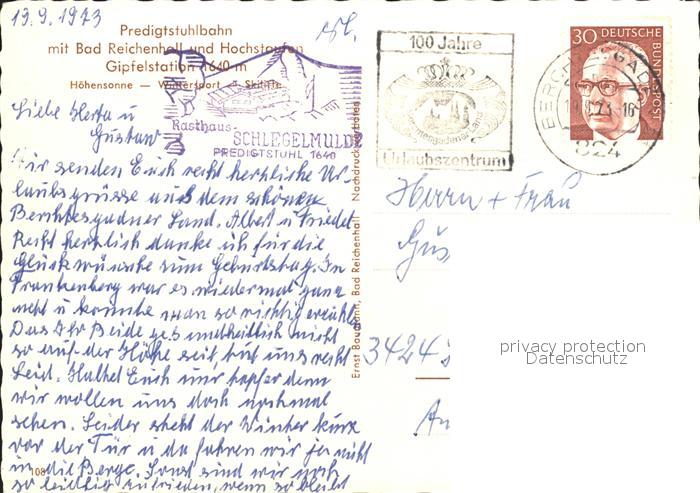 19.9.1973
Predigtstuhlbahn
mit Bad Reichenhall und Hochstaufen
Gipfelstation 1640 m
Höhensonne — Wintersport — Skilifte
Rasthaus-
SCHLEGELMULDE
PREDIGTSTUHL 1640
Liebe Herta u
Gustav
Wir senden Euch recht herzliche Ur-
laubsgrüsse aus dem schönen
Berchtesgadner Land. Albert u Friedel
Recht herzlich danke ich für die
Glückwünsche zum Geburtstag. In
Frankenberg war es wiedermal ganz
nett u konnte man so richtig erzählen
Das Ihr Beide gesundheitlich nicht
so auf der Höhe seit, tut uns recht
Leid. Haltet Euch nur tapfer denn
wir wollen uns doch nochmal
sehen. Leider steht der Winter kurz
vor der Tür u da fahren wir ja nicht
in die Berge. Sonst sind wir noch
so leidlich zufrieden, wenn so bleibt
108
Ernst Baumann, Bad Reichenhall Nachdruck verboten
100 Jahre
Berchtesgadener Land
Urlaubszentrum
30 DEUTSCHE BUNDESPOST
824
Herrn + Frau
Gus
3424
An
privacy protection
Datenschutz